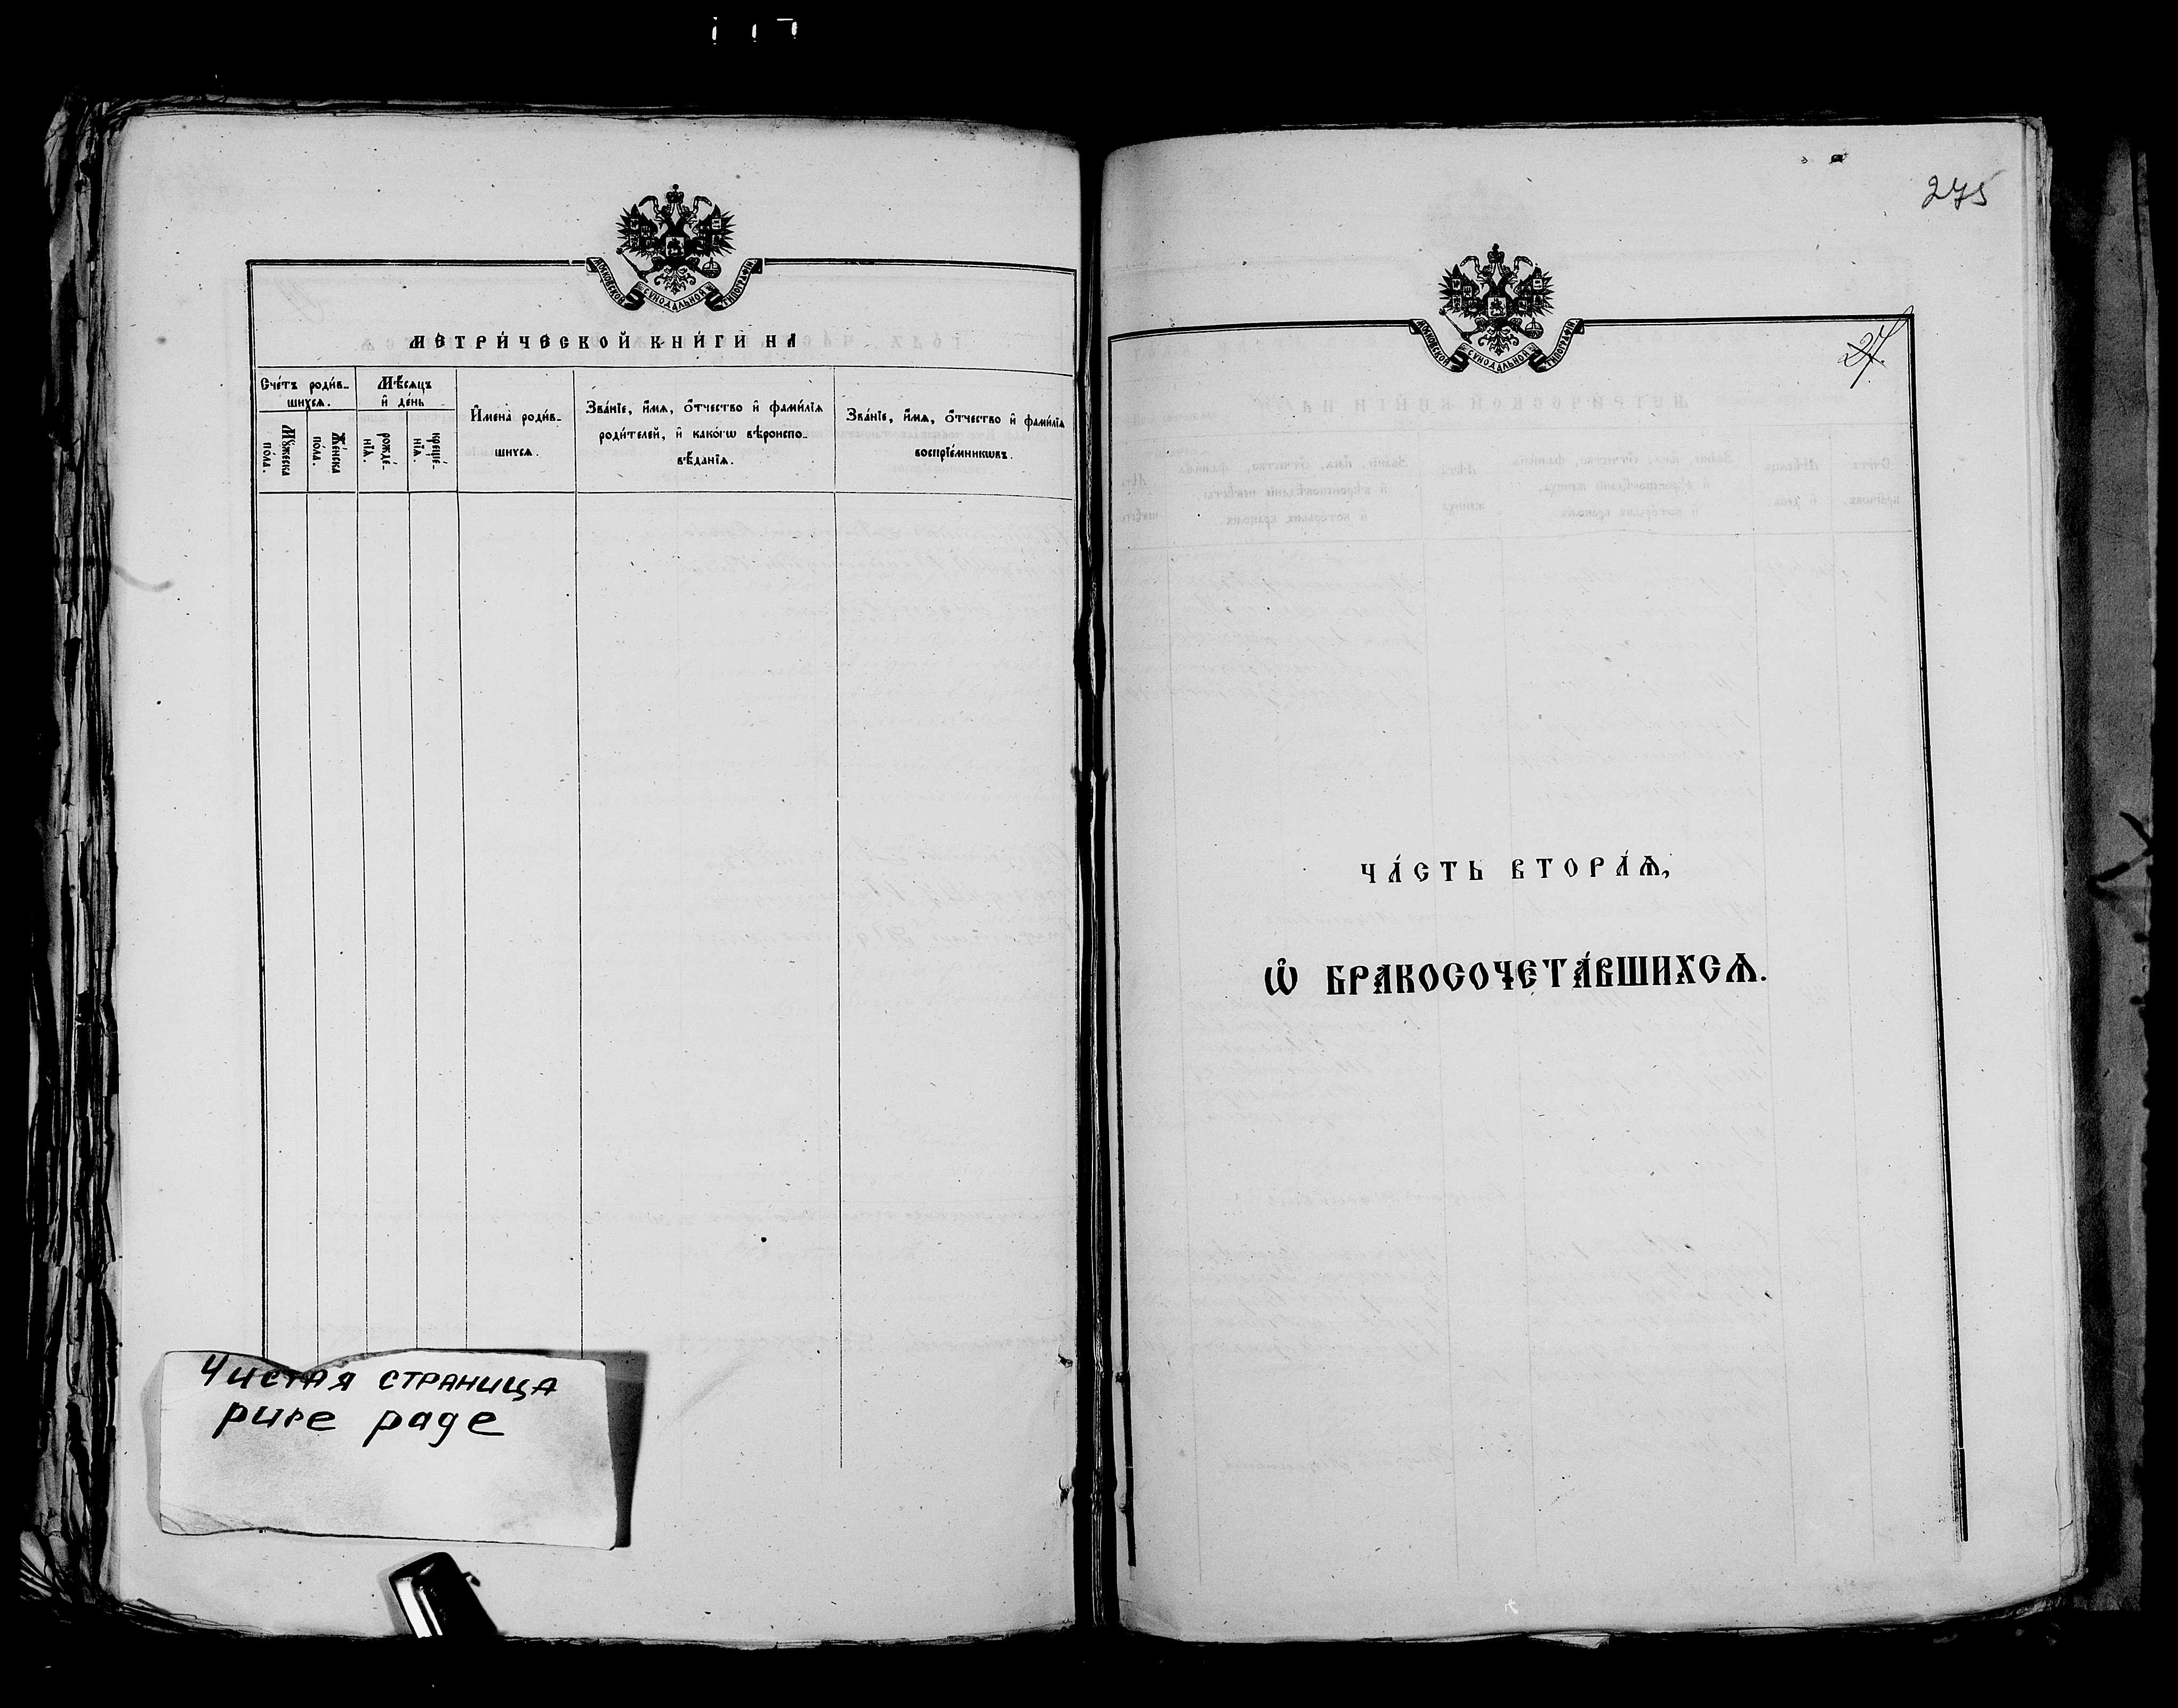 МОСКОВСКОЙ СѴНОДАЛЬНОЙ ТИПОГРАФІИ
МЕТРИ́ЧЕСКОЙ КНИ́ГИ НА
Сче́тъ роди́в-
шихсѧ.
Мꙋ́жеска
по́ла.
Же́нска
по́ла.
Мѣ́сѧцъ
и҆ де́нь
рожде́-
нїѧ.
креще́-
нїѧ.
И҆мена̀ роди́в-
шихсѧ.
Зва́нїе, и҆́мѧ, ѻ҆́тчество и҆ фами́лїѧ
роди́телей, и҆ како́гѡ вѣроиспо-
вѣ́данїѧ.
Зва́нїе, и҆́мѧ, ѻ҆́тчество и҆ фами́лїѧ
воспрїе́мникѡвъ.
Чистая страница
pure page
275
МОСКОВСКОЙ СѴНОДАЛЬНОЙ ТИПОГРАФІИ
27.
ЧА́СТЬ ВТОРА́Ѧ,
Ѡ҆ БРАКОСОЧЕТА́ВШИХСѦ.